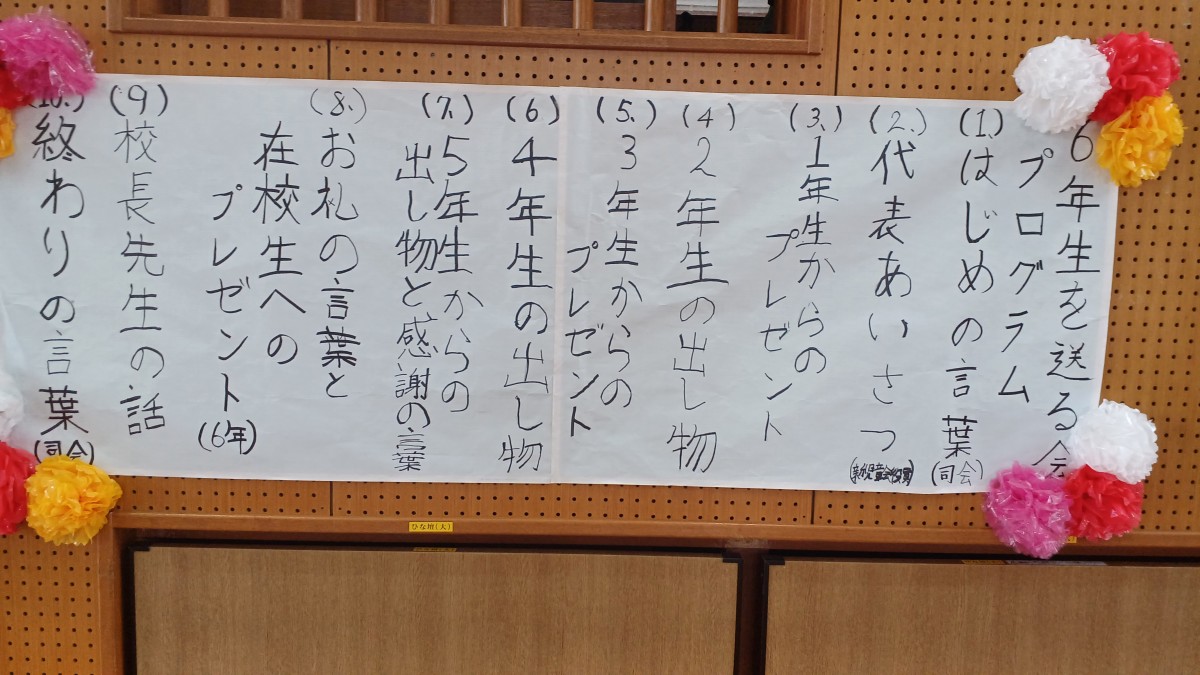 6年生を送る会
プログラム
(1.)はじめの言葉(司会)
(2.)代表あいさつ
(3.)1年生からの
プレゼント
(4)2年生の出し物
(5.)3年生からの
プレゼント
(6)4年生の出し物
(7.)5年生からの
出し物と感謝の言葉
(8.)お礼の言葉と
在校生への
プレゼント(6年)
(9)校長先生の話
(10.)終わりの言葉(司会)
ひな壇(大)